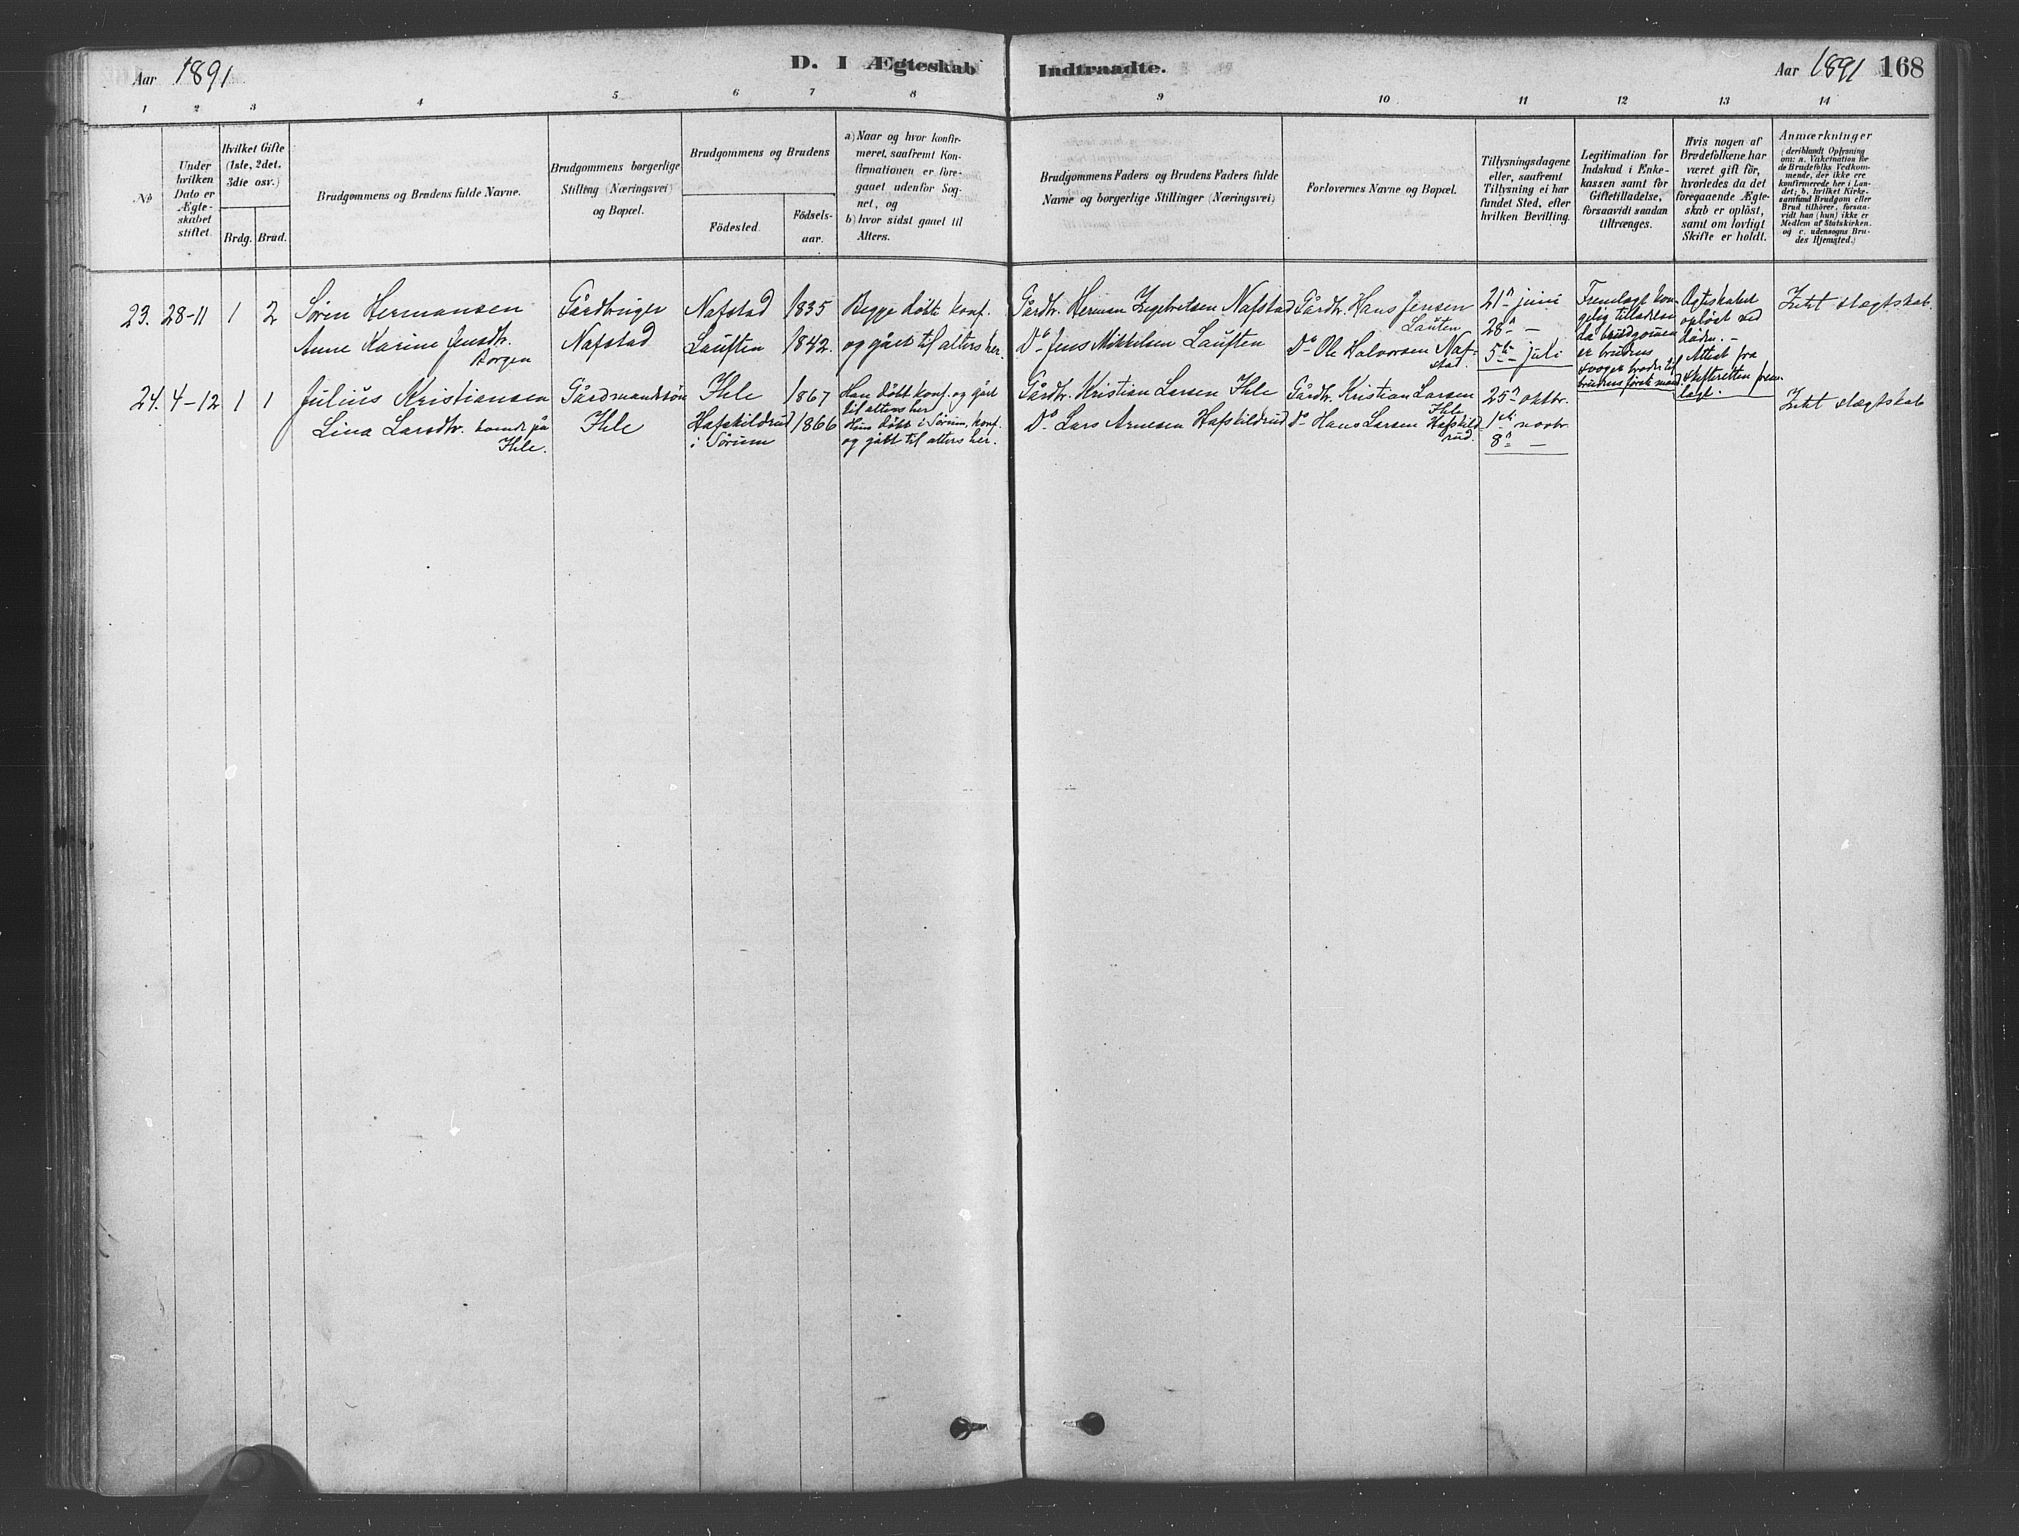 Aar 1891
D. I Ægteskab Indtraadte.
Aar 1891 168
1 2 3 4 5 6 7 8 9 10 11 12 13 14
No
Under
hvilken
Dato er
Ægte-
skabet
stiftet.
Hvilket Gifte
(1ste, 2det,
3die osv.)
Brdg. Brud.
Brudgommens og Brudens fulde Navne.
Brudgommens borgerlige
Stilling (Næringsvei)
og Bopæl.
Brudgommens og Brudens
Födested.
Födsels-
aar.
a) Naar og hvor konfir-
meret, saafremt Kon-
firmationen er fore-
gaaet udenfor Sog-
net, og
b) hvor sidst gaaet til
Alters.
Brudgommens Faders og Brudens Faders fulde
Navne og borgerlige Stillinger (Næringsvei)
Forlovernes Navne og Bopæl.
Tillysningsdagene
eller, saafremt
Tillysning ei har
fundet Sted, efter
hvilken Bevilling.
Legitimation for
Indskud i Enke-
kassen samt for
Giftetilladelse,
forsaavidt saadan
tiltrænges.
Hvis nogen af
Brudefolkene har
været gift før,
hvorledes da det
foregaaende Ægte-
skab er opløst,
samt om lovligt
Skifte er holdt.
Anmærkninger
(deriblandt Oplysning
om: a. Vakcination for
de Brudefolks Vedkom-
mende, der ikke ere
konfirmerede her i Lan-
det; b. hvilket Kirke-
samfund Brudgom eller
Brud tilhører, forsaa-
vidt han (hun) ikke er
Medlem af Statskirken,
og c. udensogns Bru-
des Hjemsted.)
23. 28-11 1 2
Søren Hermansen
Anne Karine Jensdtr.
Borgen
Gårdbruger
Nafstad
Nafstad 1835
Lauften 1842.
Begge døbt konf.
og gået til alters her.
Gårdbr. Herman Engebretsen Nafstad
Do Jens Mikkelsen Lauften
Gårdbr. Hans Jensen
Lauten
Do Ole Halvorsen Naf-
stad.
21de juni
28de —
5te juli
Fremlagt kon-
gelig tilladelse
da brudgommen
er brudens
svoger broder til
brudens første mand
Ægteskabet
opløst ved
døden. —
Attest fra
skifteretten frem-
lagt.
Intet slægtskab.
24. 4-12 1 1
Julius Kristiansen
Lina Larsdtr. boende på
Ihle.
Gårdmandssøn
Ihle
Ihle 1867
Hafskildrud 1866
i Sørum
Han døbt konf. og gået
til alters her
Hun døbt i Sørum, konf.
og gått til alters her.
Gårdbr. Kristian Larsen Ihle
Do Lars Arnesen Hafskildrud
Gårdbr. Kristian Larsen
Ihle
Do Hans Larsen Hafskild-
rud.
25de oktbr.
1ste novbr.
8de —
Intet slægtskab